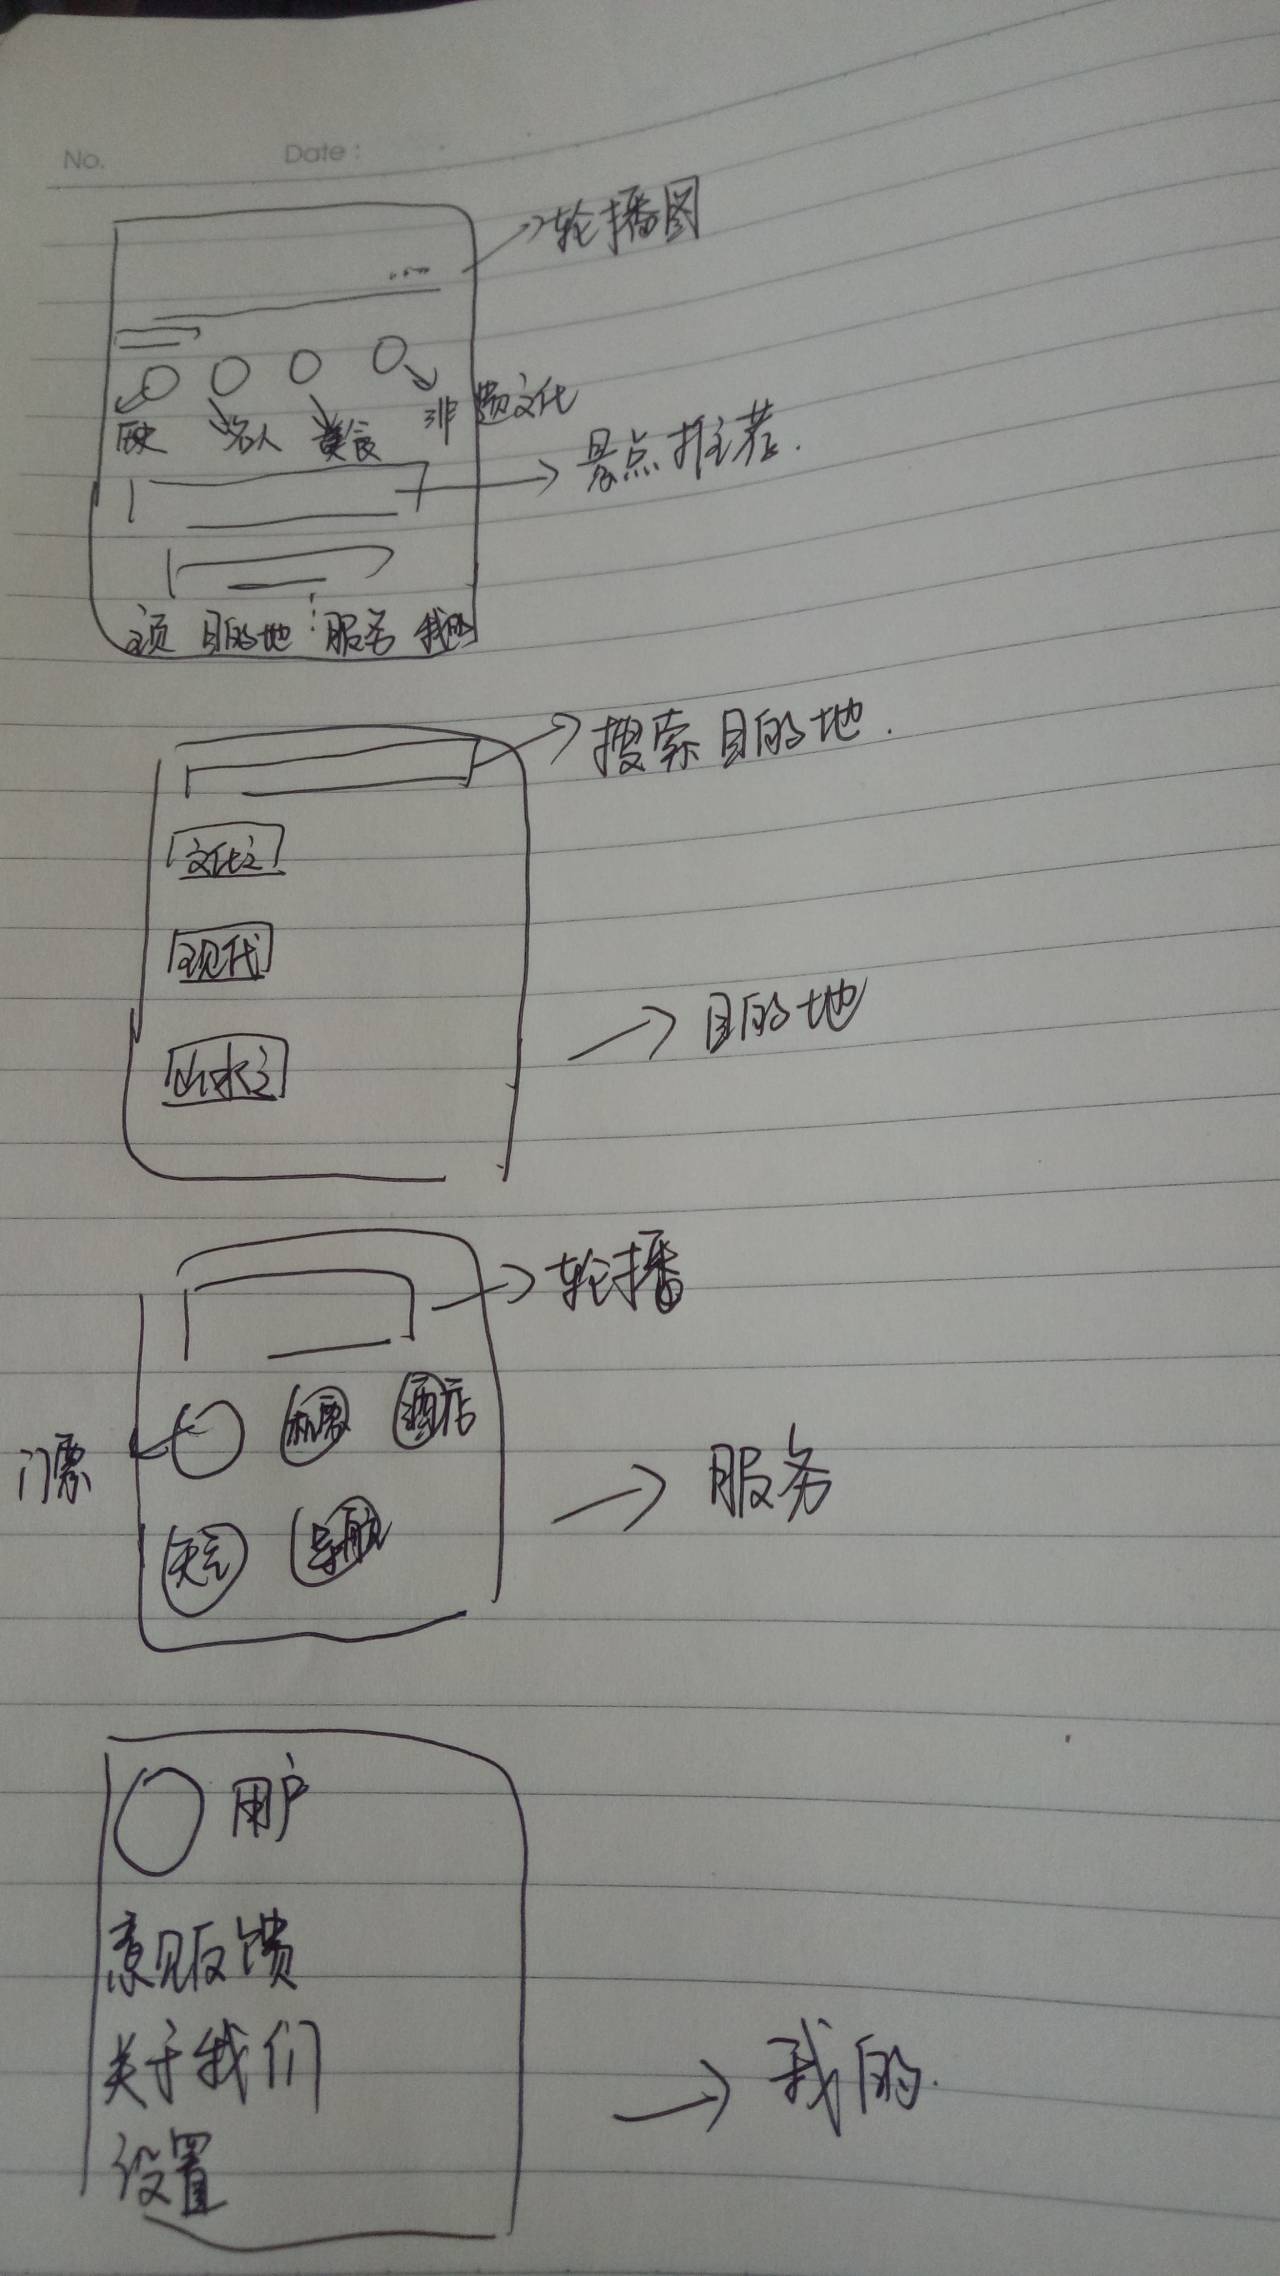 No. Date:
轮播图
历史 名人 美食 非遗文化
景点推荐.
主页 目的地 服务 我的
搜索目的地.
文化之
现代
目的地
山水之
轮播
门票 机票 酒店
服务
天气 导航
用户
意见反馈
关于我们
我的.
设置